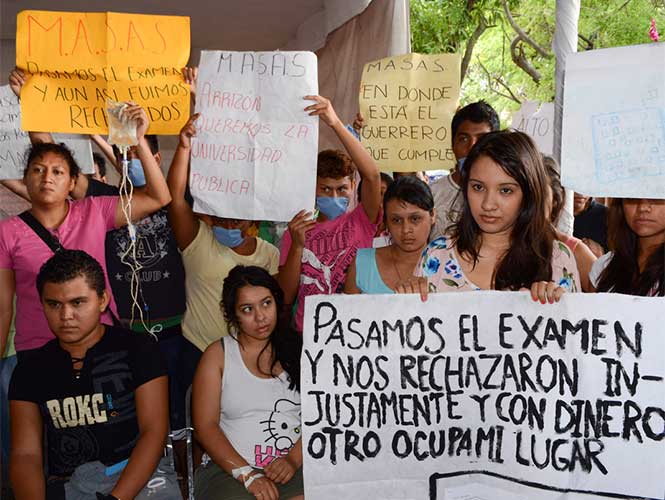 M.A.S.A.S
PASAMOS EL EXAMEN
Y AUN ASI FUIMOS
RECHAZADOS
M A S A S
ARRIZÓN
QUEREMOS LA
UNIVERSIDAD
PUBLICA
MASAS
EN DONDE
ESTÁ EL
GUERRERO
QUE CUMPLE
ALTO
CLUB
ROKC
PASAMOS EL EXAMEN
Y NOS RECHAZARON IN-
JUSTAMENTE Y CON DINERO
OTRO OCUPA MI LUGAR